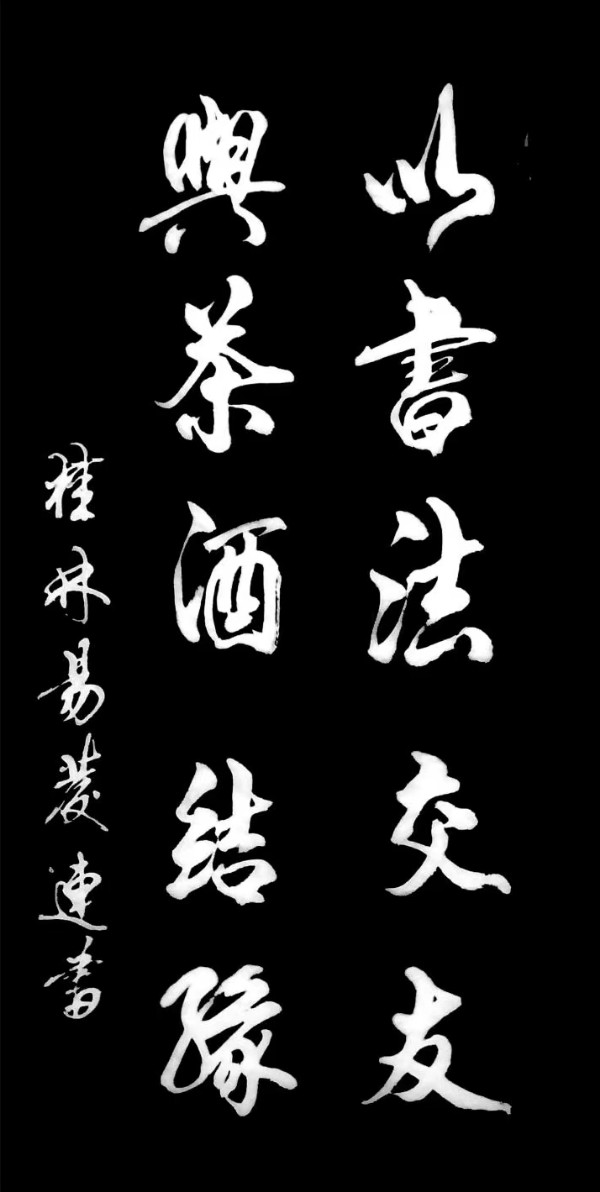 以書法交友
與茶酒結緣
桂林易發連書